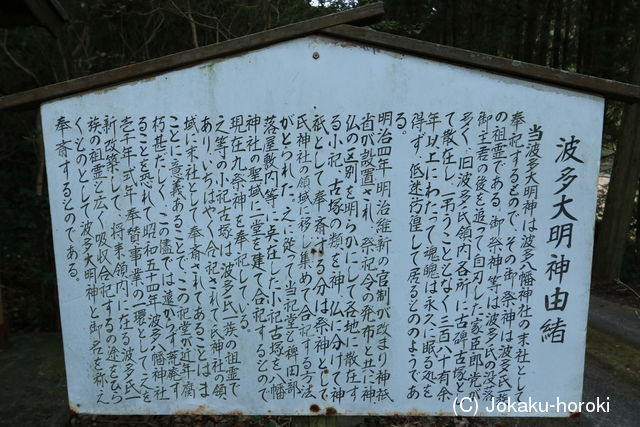 波多大明神由緒
当波多大明神は波多八幡神社の末社として
奉祀するもので、その御祭神は波多氏一族
の祖霊である。御祭神等は波多氏の没落
御主君の後を追って自刃した家臣郎党
多く、旧波多氏領内各所に古碑古塚と
て散在し、弔うこともなく三百八十有余
年以上にわたって魂魄は永久に眠る処を
得ず、低迷彷徨して居るとのようであ
明治四年明治維新の官制が改まり神祇
省が設置され、祭祀令の発布と共に神
仏の区別を明らかにして各地に散在す
る小祀、古塚の類を神と仏に分けて神
祇として奉斎する分は祭神として
氏神社の領域に移し集めて合祀する方法
がとられた。之に従って当祀堂と稗田部
落屋敷内等に点在した小祀古塚を八幡
神社の聖域に一堂を建て合祀するもので
現在九祭神を奉祀している。
之等の小祀古塚は、波多氏一族の祖霊で
あり、いちはやく合祀されて氏神社の領
域に末社として奉斎されてあることはま
ことに意義あることで、この祀堂が近年腐
朽甚だしく、この儘では遠からず荒廃す
ることを恐れて昭和五十四年波多八幡神社
壱千年式年奉賛事業の一環として之を
新改築して、将来領内に在る波多氏一
族の祖霊を広く吸収合祀するの途をひら
くものとして波多大明神と御名を称え
奉斎するものである。
(C) Jokaku-horoki